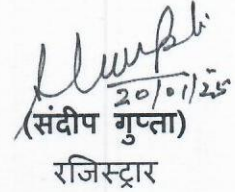 20/01/25
(संदीप गुप्ता)
रजिस्ट्रार